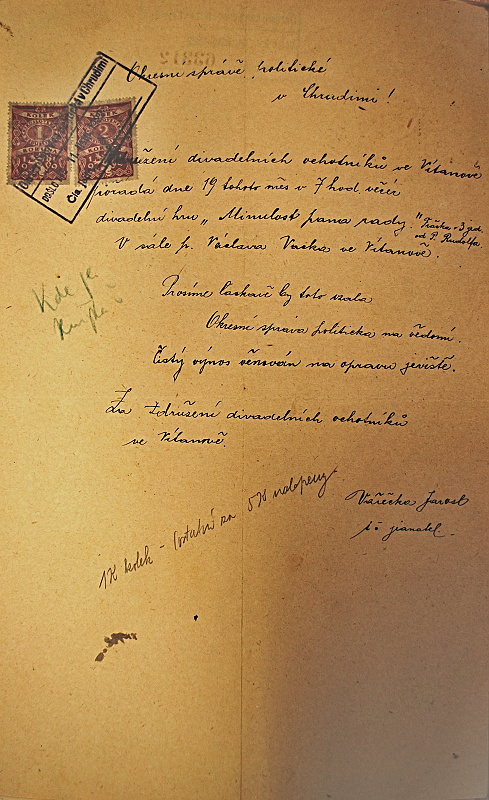 Okresní správě politické
v Chrudimi!
KOLEK KOLEK
1 2
v Chrudimi
DOŠLO
Čís.
Sdružení divadelních ochotníků ve Vítanově
pořádá dne 19 tohoto měs v 7 hod. večer
divadelní hru „Minulost pana rady." Fraška o 3 jed.
od P. Rudolfa.
V sále p. Václava Vacka ve Vítanově.
Kde je
Prosíme laskavě by toto vzala
Okresní správa politická na vědomí.
Čistý výnos věnován na opravu jeviště.
Za Sdružení divadelních ochotníků
ve Vítanově.
Vářečka Jarosl
t. č. jednatel.
1K kolek - ostatní za